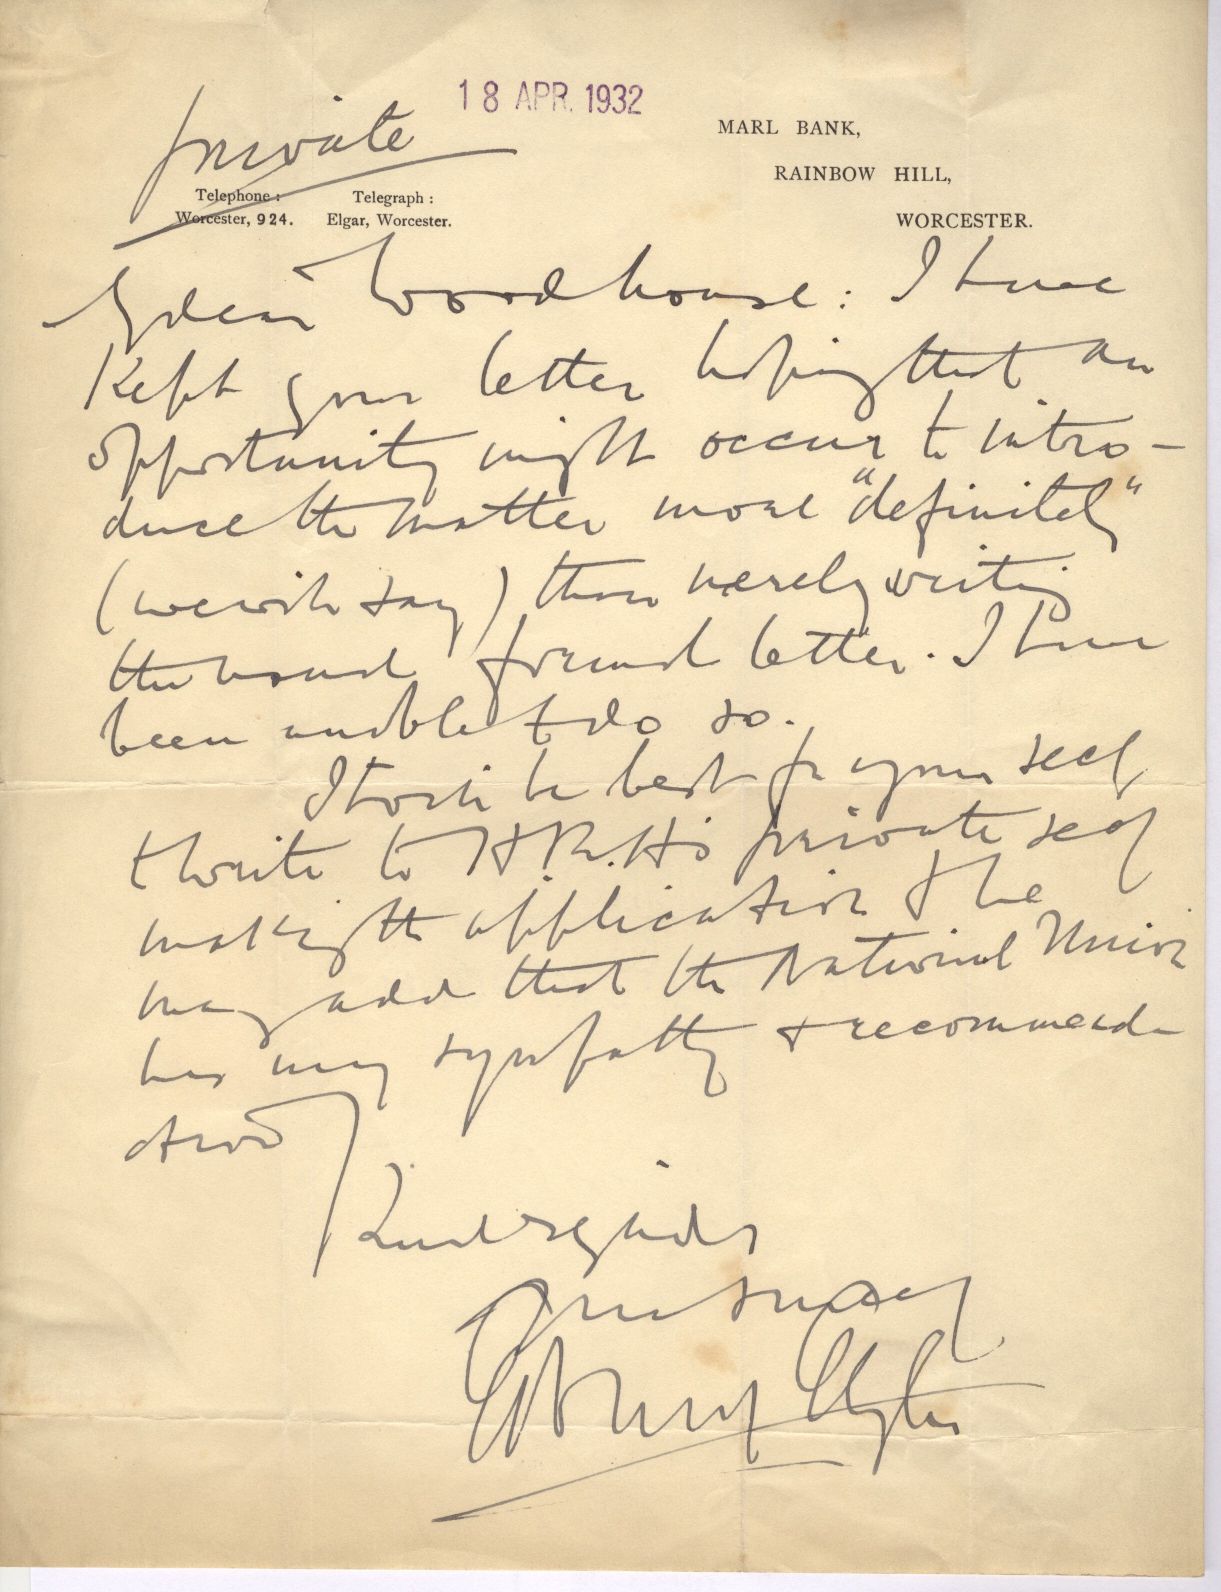 18 APR. 1932
Private
MARL BANK,
RAINBOW HILL,
WORCESTER.
Telephone : Telegraph :
Worcester, 924. Elgar, Worcester.
My dear Woodhouse: I have
kept your letter hoping that an
opportunity might occur to intro-
duce the matter more "definitely"
(we wish say) than merely writing
the usual formal letter. I have
been unable to do so.
It will be best for your secy
to write to H.R.H's private secy
making the application & he
may add that the National Union
has my sympathy & recommend-
ation
Kind regards
Yours sincerely
Edward Elgar